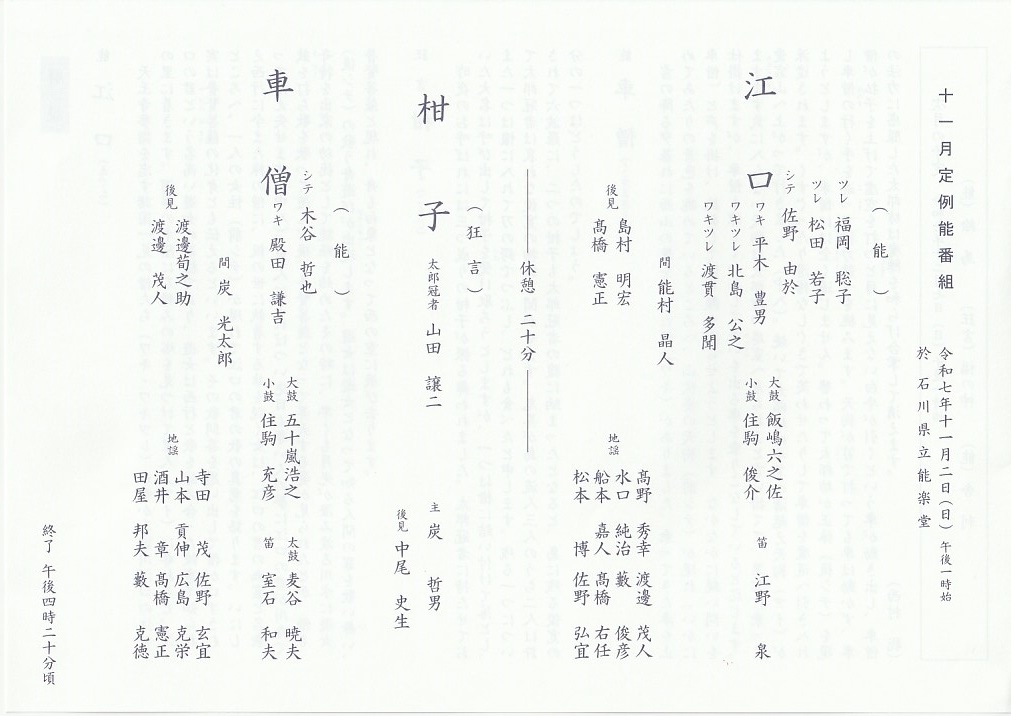 十一月定例能番組
令和七年十一月二日(日) 午後一時始
於 石川県立能楽堂
(能)
江口
ツレ 福岡 聡子
ツレ 松田 若子
シテ 佐野 由於
ワキ 平木 豊男
ワキツレ 北島 公之
ワキツレ 渡貫 多聞
間 能村 晶人
大鼓 飯嶋六之佐
小鼓 住駒 俊介
笛 江野 泉
後見 島村 明宏
髙橋 憲正
地謡
髙野 秀幸 渡邊 茂人
水口 純治 藪 俊彦
船本 嘉人 髙橋 右任
松本 博 佐野 弘宜
休憩 二十分
(狂言)
柑子
太郎冠者 山田 讓二
主 炭 哲男
後見 中尾 史生
(能)
車僧
シテ 木谷 哲也
ワキ 殿田 謙吉
間 炭 光太郎
大鼓 五十嵐浩之
小鼓 住駒 充彦
太鼓 麦谷 暁夫
笛 室石 和夫
後見 渡邊荀之助
渡邊 茂人
地謡
寺田 茂 佐野 玄宜
山本 貢伸 広島 克栄
酒井 章 髙橋 憲正
田屋 邦夫 藪 克徳
終了 午後四時二十分頃